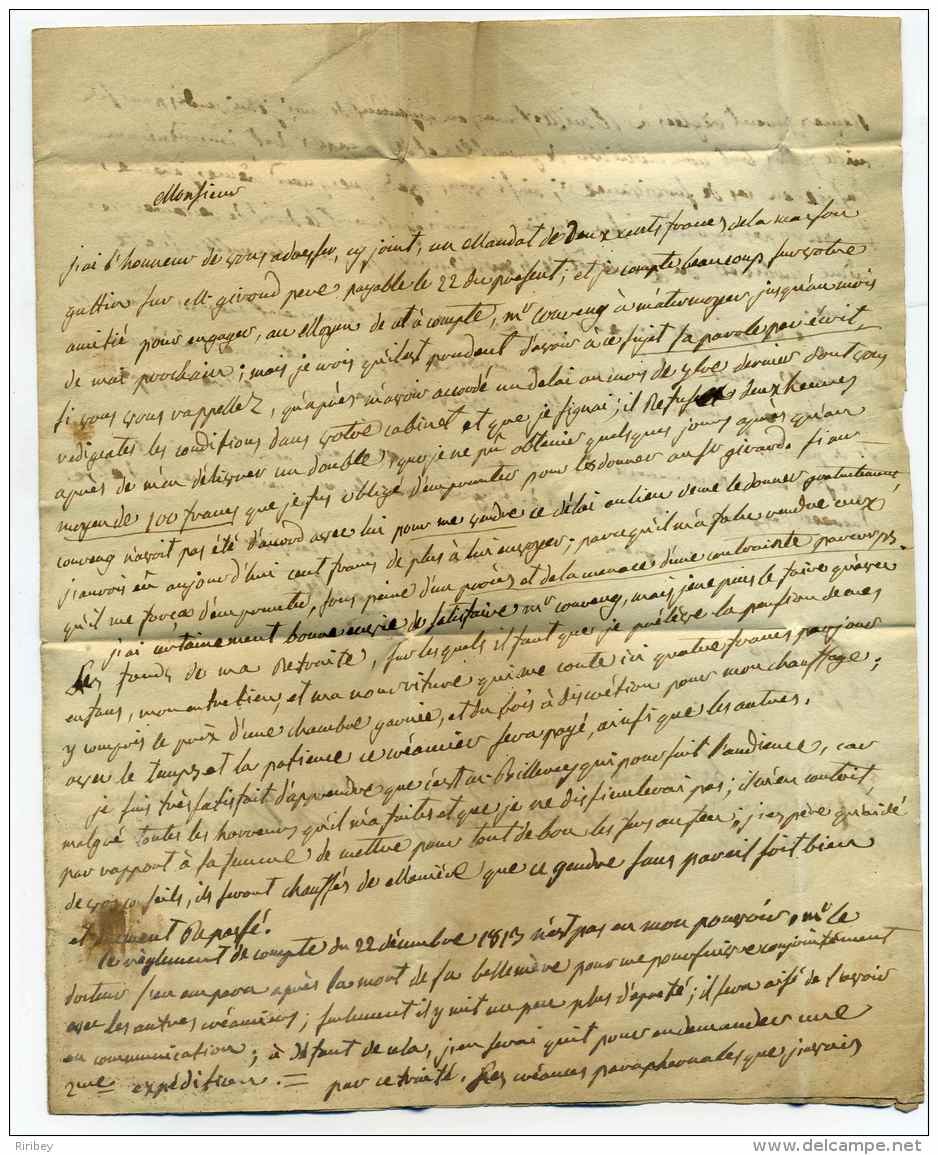 Monsieur
j'ai l'honneur de vous adresser, cy joint, un Mandat de deux cents francs de la maison
guttin sur M. giroud pere, payable le 22 du présent; et je compte beaucoup sur votre
amitié pour engager, au Moyen de cet à compte, mr couveng à m'atermoyer jusqu'au mois
de mai prochain; mais je crois qu'il est prudent d'avoir à ce sujet sa parole par écrit,
si vous vous rappellez, qu'après m'avoir accordé un delai au mois de dernier dont vous
redigeates les conditions dans votre cabinet et que je signai; il Refusa deux heures
après de m'en délivrer un double, que je ne pu obtenir quelques jours après qu'au
moyen de 100 francs que je fus obligé d'emprunter pour les donner au Sr girard. si au
couveng n'avoit pas été d'accord avec lui pour me vendre ce délai au lieu de me le donner gratuitement
j'aurois eu aujourd'hui cent francs de plus à lui envoyer; parce qu'il m'a falu vendre ceux
qu'il me força d'emprunter, sous peine d'un procès et de la menace d'une contrainte par corps.
j'ai certainement bonne envie de satisfaire mr couveng, mais je ne puis le faire qu'avec
Les fonds de ma Retraite, sur lesquels il faut que je prélève la pension de mes
enfans, mon entretien, et ma nourriture qui me coute ici quatre francs par jour
y compris le prix d'une chambre garnie, et du bois à discrétion pour mon chauffage;
avec le temps et la patience ce créancier sera payé, ainsi que les autres.
je suis très satisfait d'apprendre que c'est mr qui poursuit l'audience, car
malgré toutes les horreurs qu'il m'a faites et que je ne dissimulerai pas; il m'en coutoit,
par rapport à sa femme de mettre pour tout de bon les fers au feu; j'espère qu'aidé
de vos conseils, ils seront chauffés de Manière que ce gendre sans pareil soit bien
et Repassé.
le règlement de compte du 22 décembre 1813 n'est pas en mon pouvoir, mr le
docteur s'en empara après la mort de sa bellemère pour me poursuivre conjointement
avec les autres créanciers; seulement il y mit un peu plus d'apreté; il sera aisé de l'avoir
en communication; à défaut de cela, j'en serai quit pour en demander une
2me expédition. = par ce traité. Les créances paraphernales que j'avois
Riribey
www.delcampe.net